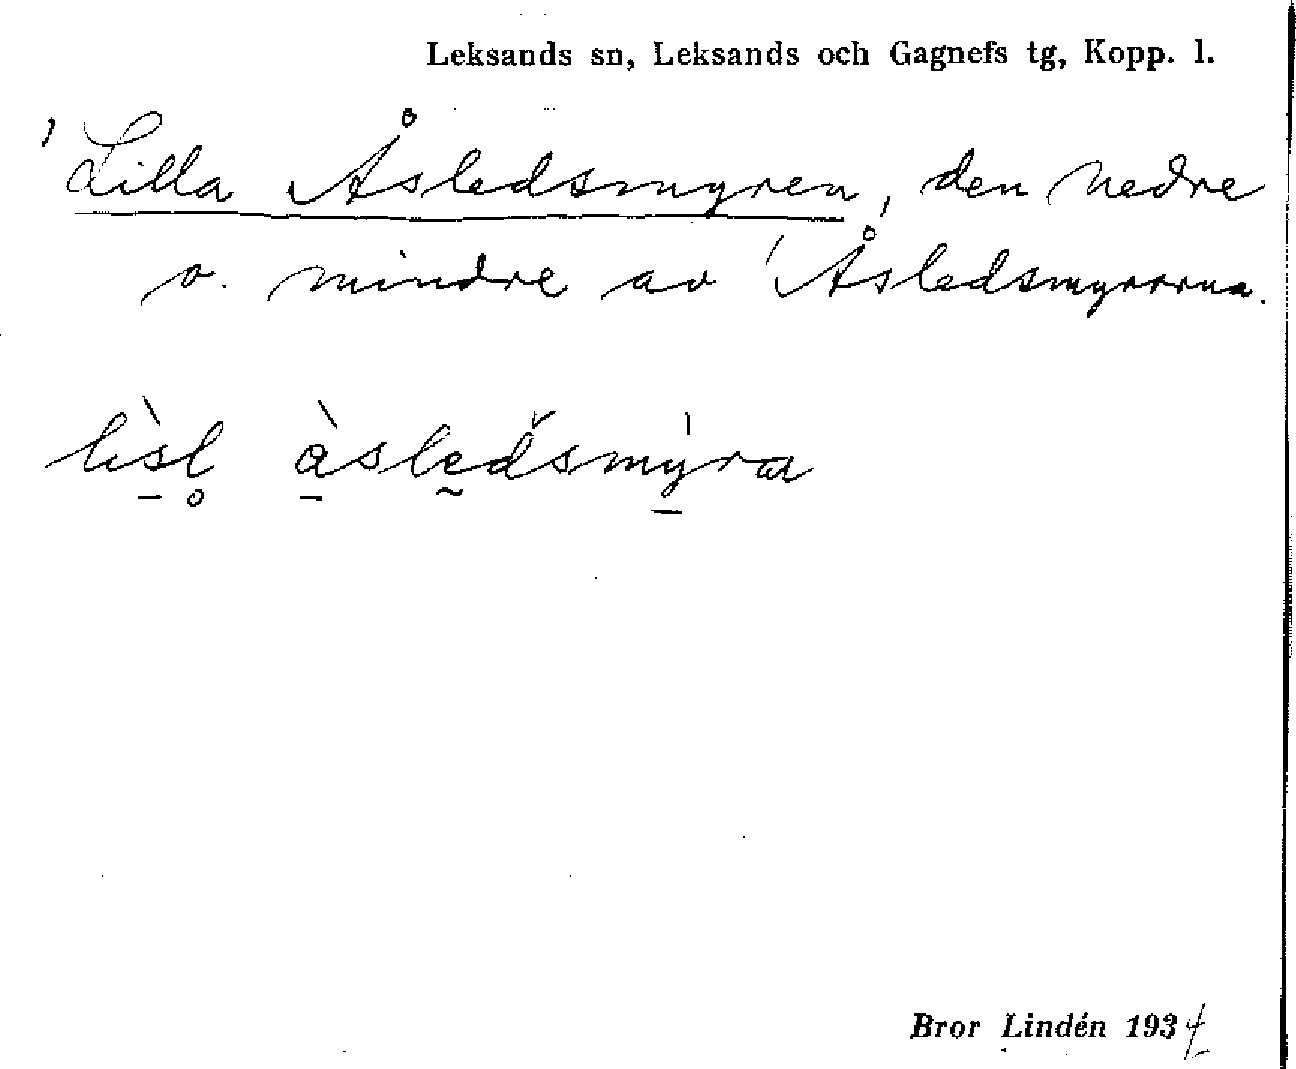 Leksands sn, Leksands och Gagnefs tg, Kopp. l.
'Lilla Åsledsmyren', den nedre
o. mindre av 'Åsledsmyrarna.
lìsl̥ àsledsmyra
Bror Lindén 1934